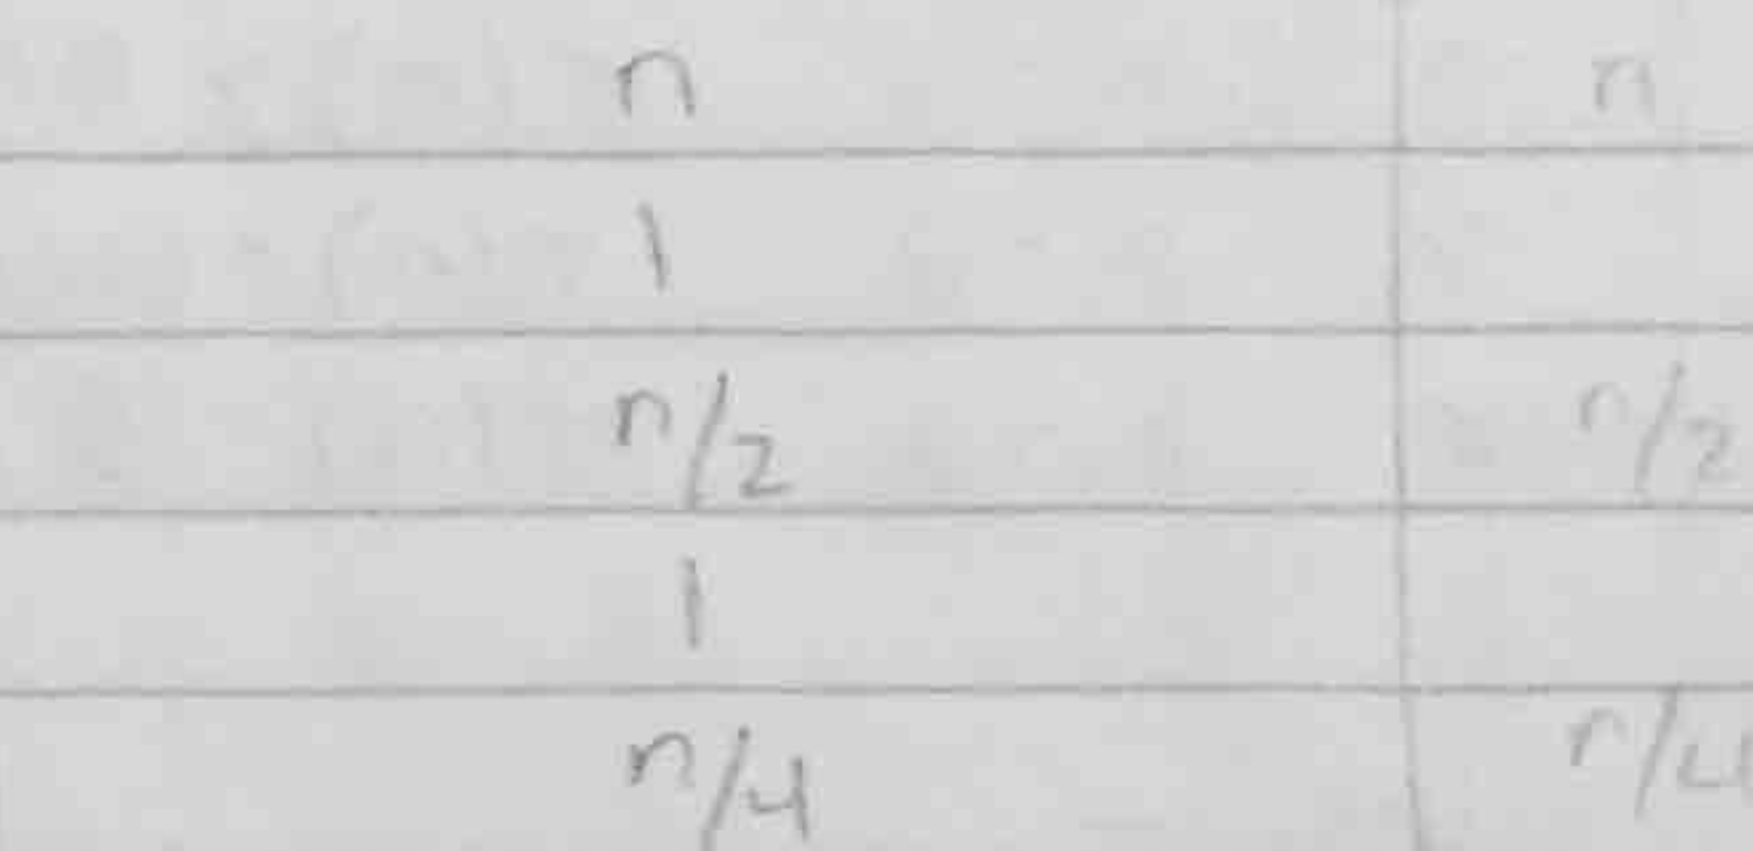 n n
1
n/2 n/2
1
n/4 n/4